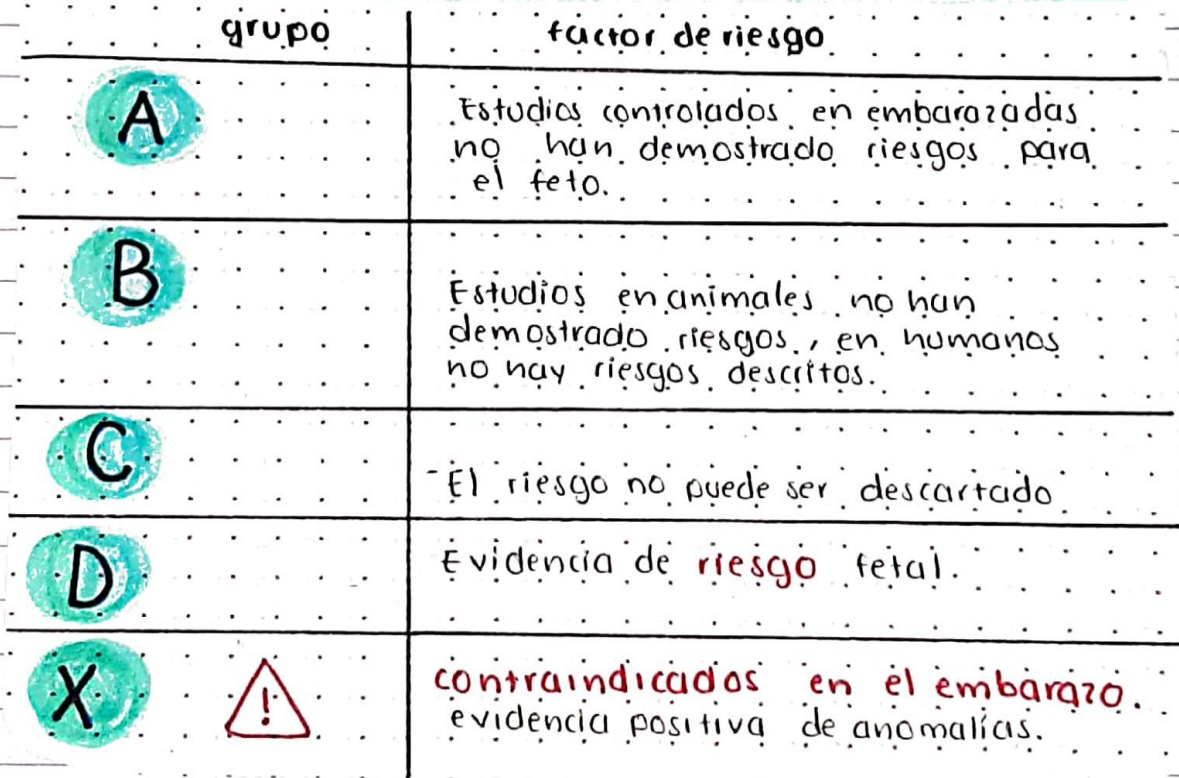 grupo factor de riesgo
A
Estudios controlados en embarazadas
no han demostrado riesgos para
el feto.
B
Estudios en animales no han
demostrado riesgos, en humanos
no hay riesgos descritos.
C
-El riesgo no puede ser descartado
D
Evidencia de riesgo fetal.
X
!
contraindicados en el embarazo.
evidencia positiva de anomalías.